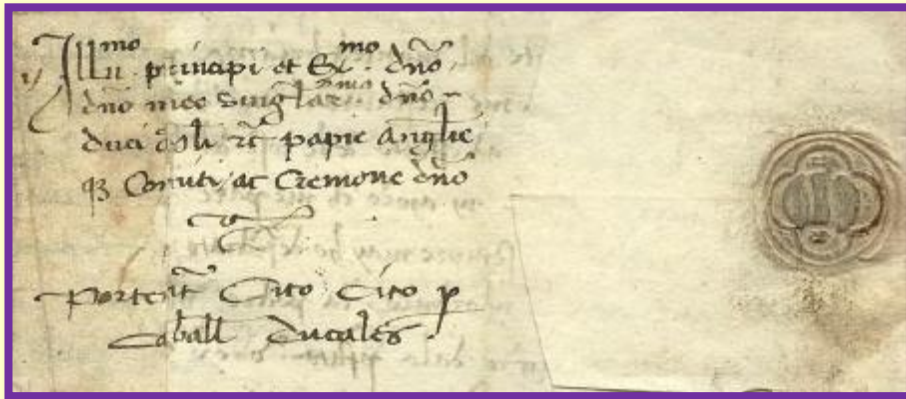 Illmo principi et Exmo. dño,
dño meo singlarmo dño
duci &c papie Anglie
q3 comiti, ac Cremone dño
Portent Cito Cito p
caball ducales.